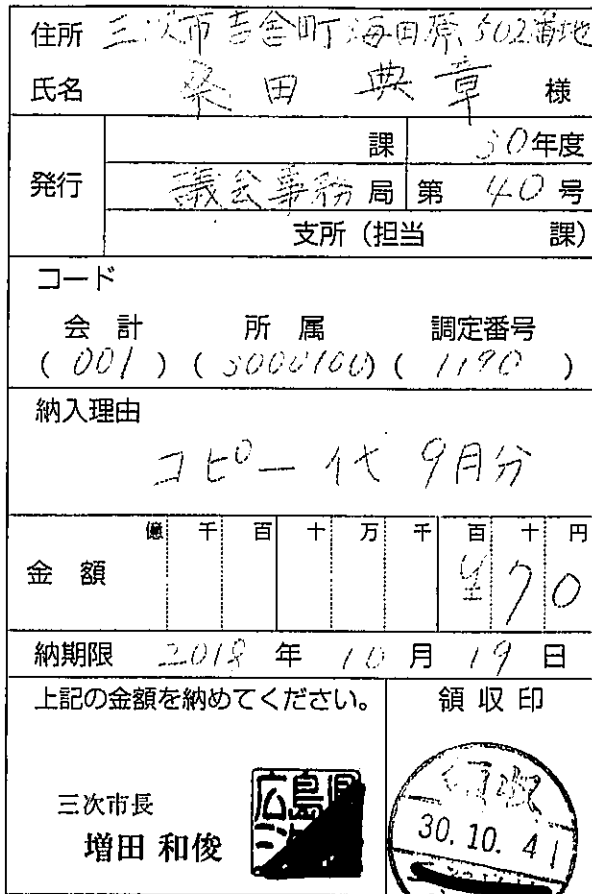 住所 三次市吉舎町海田原502番地
氏名 桑田 典章 様
発行
課 30年度
議会事務局 第 40号
支所（担当 課）
コード
会計 所属 調定番号
( 001 ) ( 5000100 ) ( 1190 )
納入理由
コピー代 9月分
億 千 百 十 万 千 百 十 円
金額 ¥70
納期限 2018年 10月 19日
上記の金額を納めてください。
領収印
三次市長
増田 和俊
広島県
領収
30.10.4